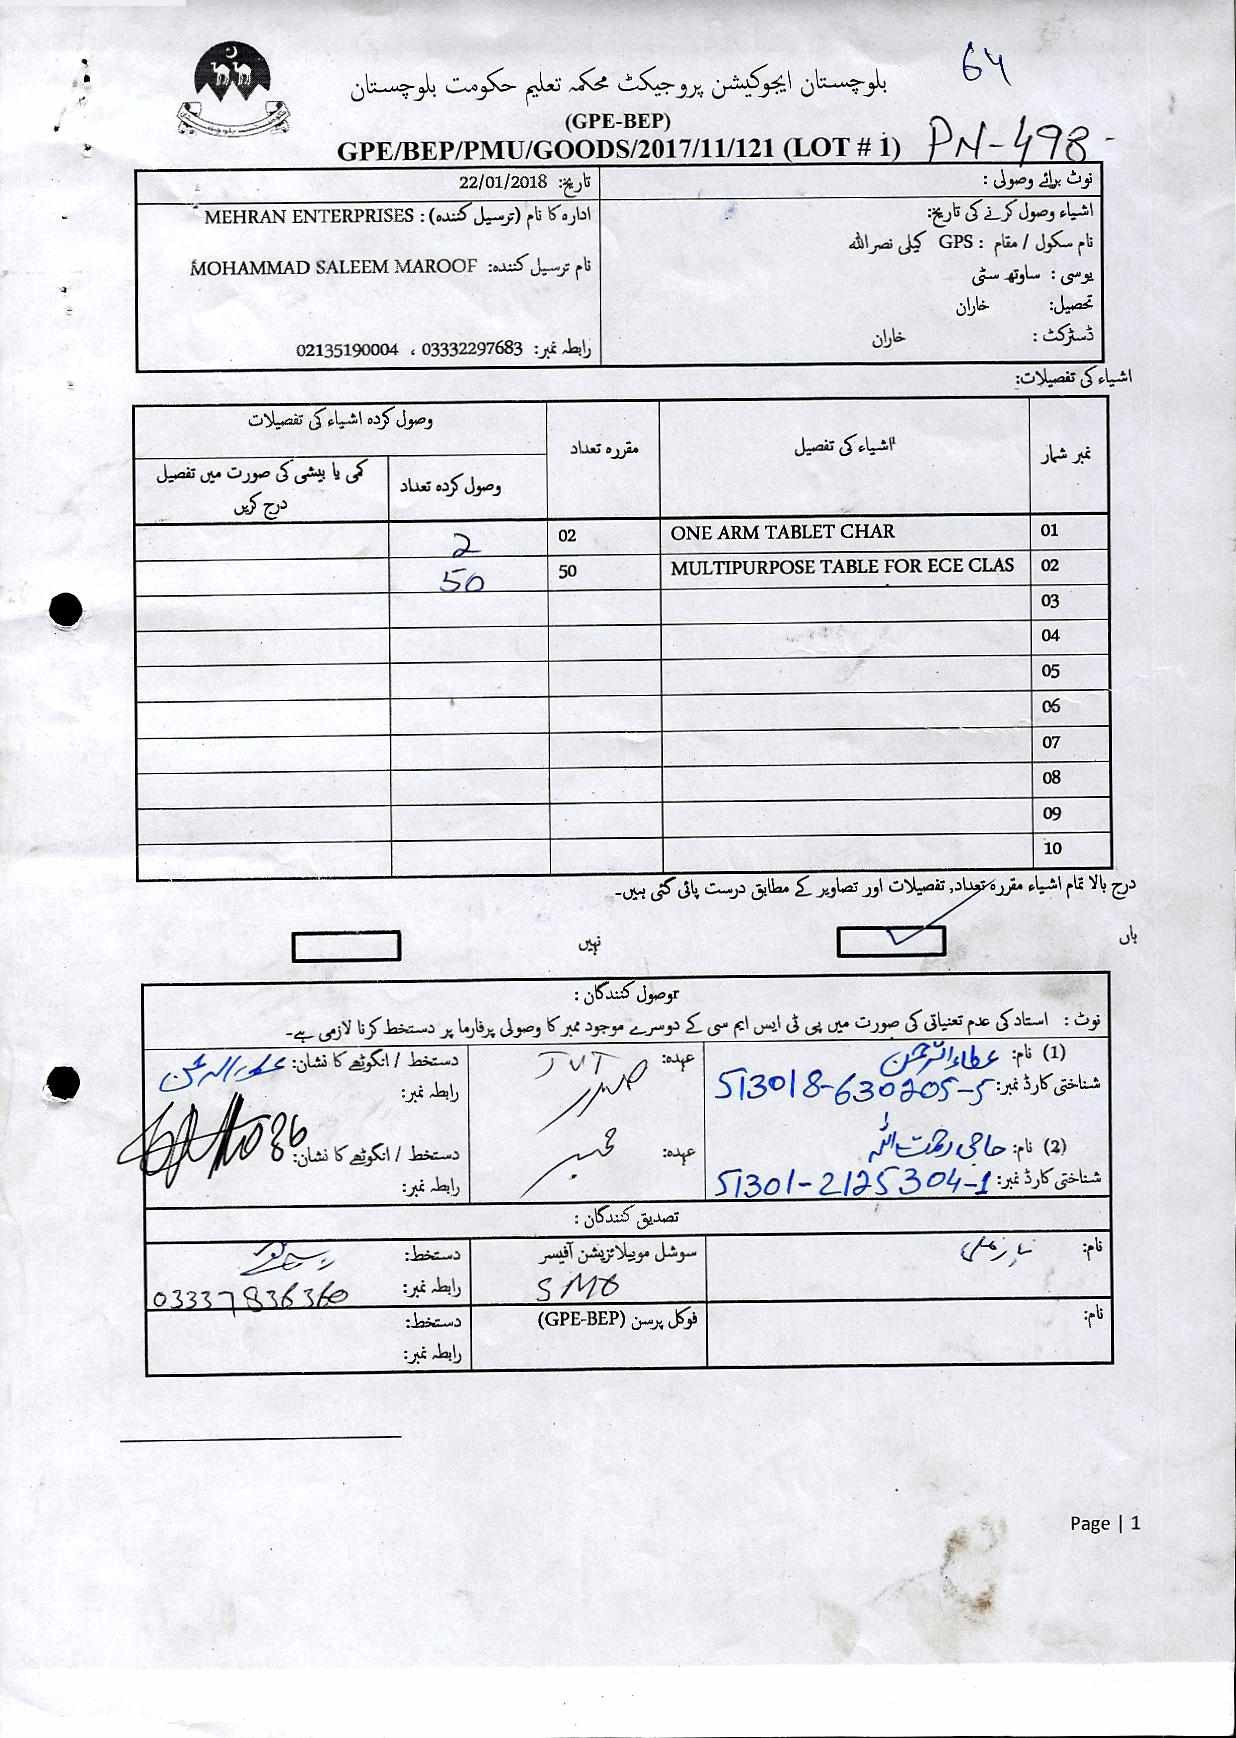 64
بلوچستان ایجوکیشن پروجیکٹ محکمہ تعلیم حکومت بلوچستان
(GPE-BEP)
GPE/BEP/PMU/GOODS/2017/11/121 (LOT # 1) PN-498-
نوٹ برائے وصولی :
تاریخ: 22/01/2018
اشیاء وصول کرنے کی تاریخ:
نام سکول / مقام : GPS کیلی نصراللہ
یوسی : ساوتھ سٹی
تحصیل: خاران
ڈسٹرکٹ : خاران
ادارہ کا نام (ترسیل کنندہ) : MEHRAN ENTERPRISES
نام ترسیل کنندہ: MOHAMMAD SALEEM MAROOF
رابطہ نمبر: 03332297683 ، 02135190004
اشیاء کی تفصیلات:
نمبر شمار اشیاء کی تفصیل مقررہ تعداد وصول کردہ اشیاء کی تفصیلات
وصول کردہ تعداد کمی یا بیشی کی صورت میں تفصیل درج کریں
01 ONE ARM TABLET CHAR 02 2
02 MULTIPURPOSE TABLE FOR ECE CLAS 50 50
03
04
05
06
07
08
09
10
درج بالا تمام اشیاء مقررہ تعداد, تفصیلات اور تصاویر کے مطابق درست پائی گئی ہیں۔
ہاں نہیں
وصول کنندگان :
نوٹ : استاد کی عدم تعنیاتی کی صورت میں پی ٹی ایس ایم سی کے دوسرے موجود ممبر کا وصولی پرفارما پر دستخط کرنا لازمی ہے۔
(1) نام: عطاء الرحمن
شناختی کارڈ نمبر: 513018-630205-5
عہدہ: JVT
صدر
دستخط / انگوٹھے کا نشان: عطاء الرحمن
رابطہ نمبر:
(2) نام: حاجی رحمت اللہ
شناختی کارڈ نمبر: 51301-2125304-1
عہدہ: ممبر
دستخط / انگوٹھے کا نشان:
رابطہ نمبر:
تصدیق کنندگان :
نام:
سوشل موبیلائزیشن آفیسر
SMO
دستخط:
رابطہ نمبر: 03337836360
نام:
فوکل پرسن (GPE-BEP)
دستخط:
رابطہ نمبر:
Page | 1